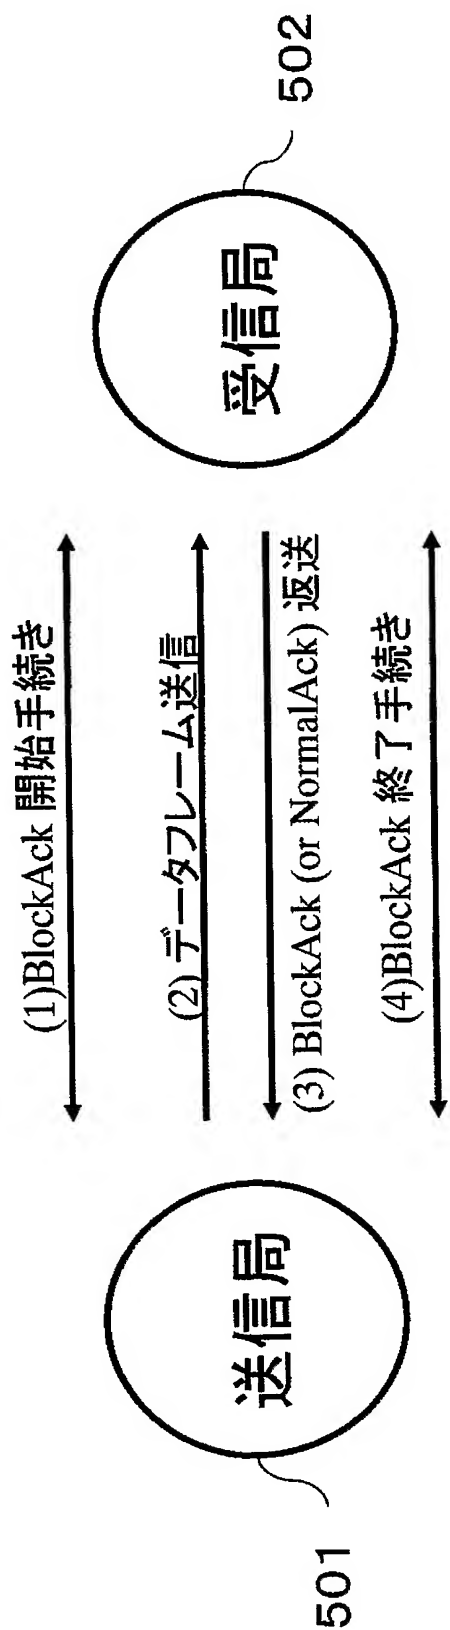 (1)BlockAck 開始手続き
(2) データフレーム送信
(3) BlockAck (or NormalAck) 返送
(4)BlockAck 終了手続き
送信局
受信局
501
502